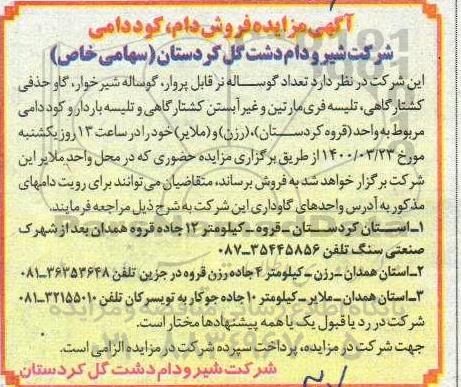 آگهی مزایده فروش دام، کود دامی
شرکت شیر و دام دشت گل کردستان (سهامی خاص)
این شرکت در نظر دارد تعداد گوساله نر قابل پروار، گوساله شیرخوار، گاو حذفی
کشتارگاهی، تلیسه فری مارتین و غیر آبستن کشتارگاهی و تلیسه باردار و کود دامی
مربوط به واحد (قروه کردستان)، (رزن) و (ملایر) خود را در ساعت ۱۳ روز یکشنبه
مورخ ۱۴۰۰/۰۳/۲۳ از طریق برگزاری مزایده حضوری که در محل واحد ملایر این
شرکت برگزار خواهد شد به فروش برساند، متقاضیان می‌توانند برای رویت دامهای
مذکور به آدرس واحدهای گاوداری این شرکت به شرح ذیل مراجعه فرمایند.
۱ـ استان کردستان ـ قروه ـ کیلومتر ۱۲ جاده قروه همدان بعد از شهرک
صنعتی سنگ تلفن ۳۵۴۴۵۸۵۶ـ۰۸۷
۲ـ استان همدان ـ رزن ـ کیلومتر ۴ جاده رزن قروه در جزین تلفن ۳۶۳۵۳۶۴۸ـ۰۸۱
۳ـ استان همدان ـ ملایر ـ کیلومتر ۱۰ جاده جوکار به تویسرکان تلفن ۳۲۱۵۵۰۱۰ـ۰۸۱
شرکت در رد یا قبول یک یا همه پیشنهادها مختار است.
جهت شرکت در مزایده، پرداخت سپرده شرکت در مزایده الزامی است.
شرکت شیر و دام دشت گل کردستان